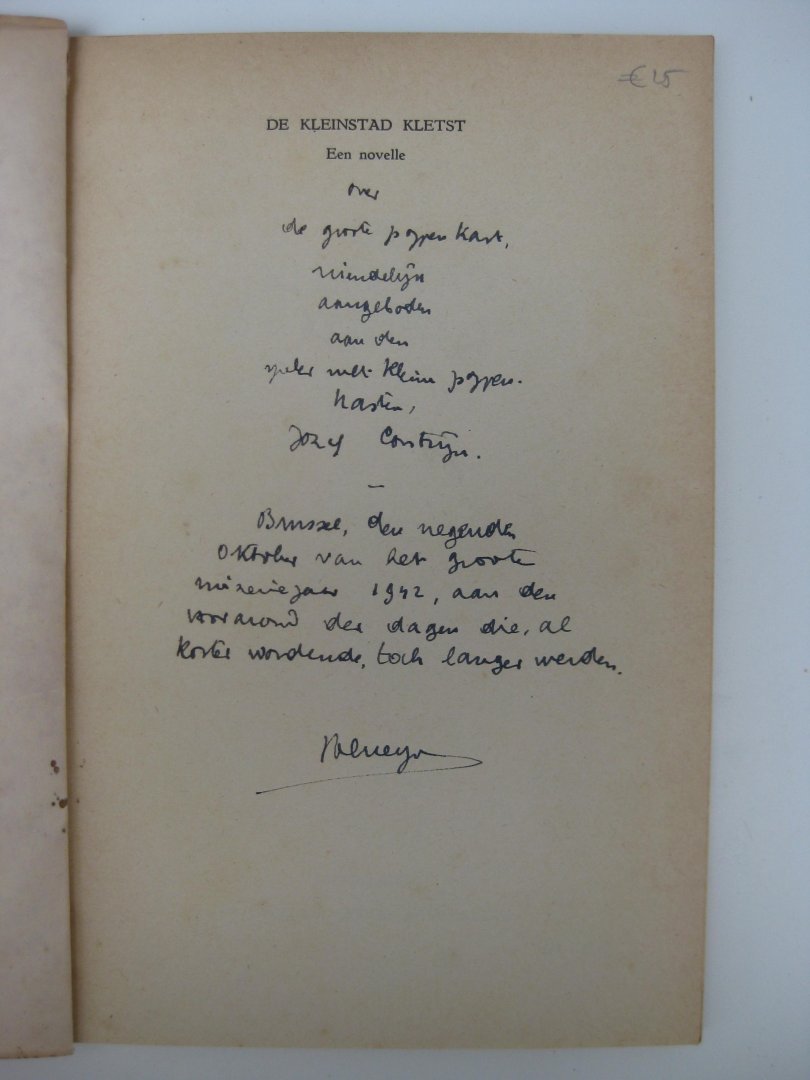 € 25
DE KLEINSTAD KLETST
Een novelle
over
de groote poppenkast,
vriendelijk
aangeboden
aan den
speler met kleine poppen-
kasten,
Jozef Contrijn.
—
Brussel, den negenden
Oktober van het groote
miseriejaar 1942, aan den
vooravond der dagen die, al
korter wordende, toch langer werden.